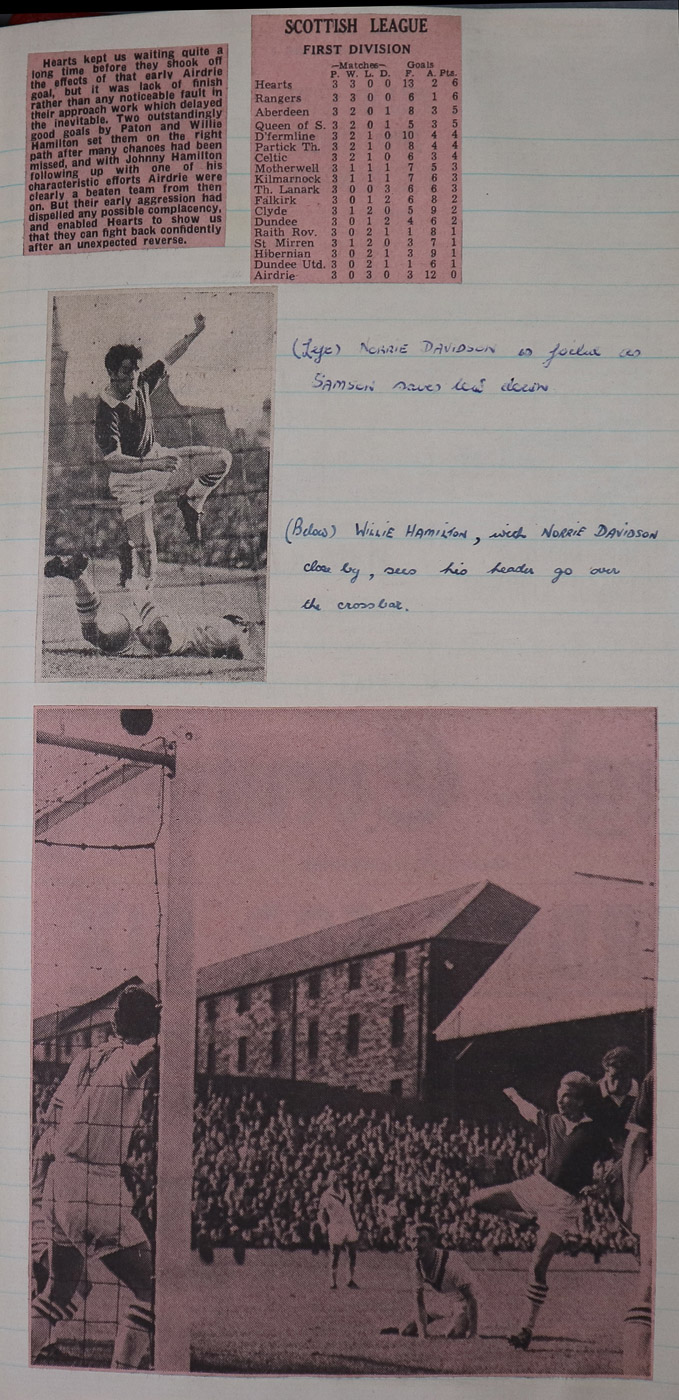 Hearts kept us waiting quite a
long time before they shook off
the effects of that early Airdrie
goal, but it was lack of finish
rather than any noticeable fault in
their approach work which delayed
the inevitable. Two outstandingly
good goals by Paton and Willie
Hamilton set them on the right
path after many chances had been
missed, and with Johnny Hamilton
following up with one of his
characteristic efforts Airdrie were
clearly a beaten team from then
on. But their early aggression had
dispelled any possible complacency,
and enabled Hearts to show us
that they can fight back confidently
after an unexpected reverse.
SCOTTISH LEAGUE
FIRST DIVISION
—Matches— Goals
P. W. L. D. F. A. Pts.
Hearts 3 3 0 0 13 2 6
Rangers 3 3 0 0 6 1 6
Aberdeen 3 2 0 1 8 3 5
Queen of S. 3 2 0 1 5 3 5
D'fermline 3 2 1 0 10 4 4
Partick Th. 3 2 1 0 8 4 4
Celtic 3 2 1 0 6 3 4
Motherwell 3 1 1 1 7 5 3
Kilmarnock 3 1 1 1 7 6 3
Th. Lanark 3 0 0 3 6 6 3
Falkirk 3 0 1 2 6 8 2
Clyde 3 1 2 0 5 9 2
Dundee 3 0 1 2 4 6 2
Raith Rov. 3 0 2 1 1 8 1
St Mirren 3 1 2 0 3 7 1
Hibernian 3 0 2 1 3 9 1
Dundee Utd. 3 0 2 1 1 6 1
Airdrie 3 0 3 0 3 12 0
(Left) NORRIE DAVIDSON is foiled as
SAMSON saves low down
(Below) WILLIE HAMILTON, with NORRIE DAVIDSON
close by, sees his header go over
the crossbar.